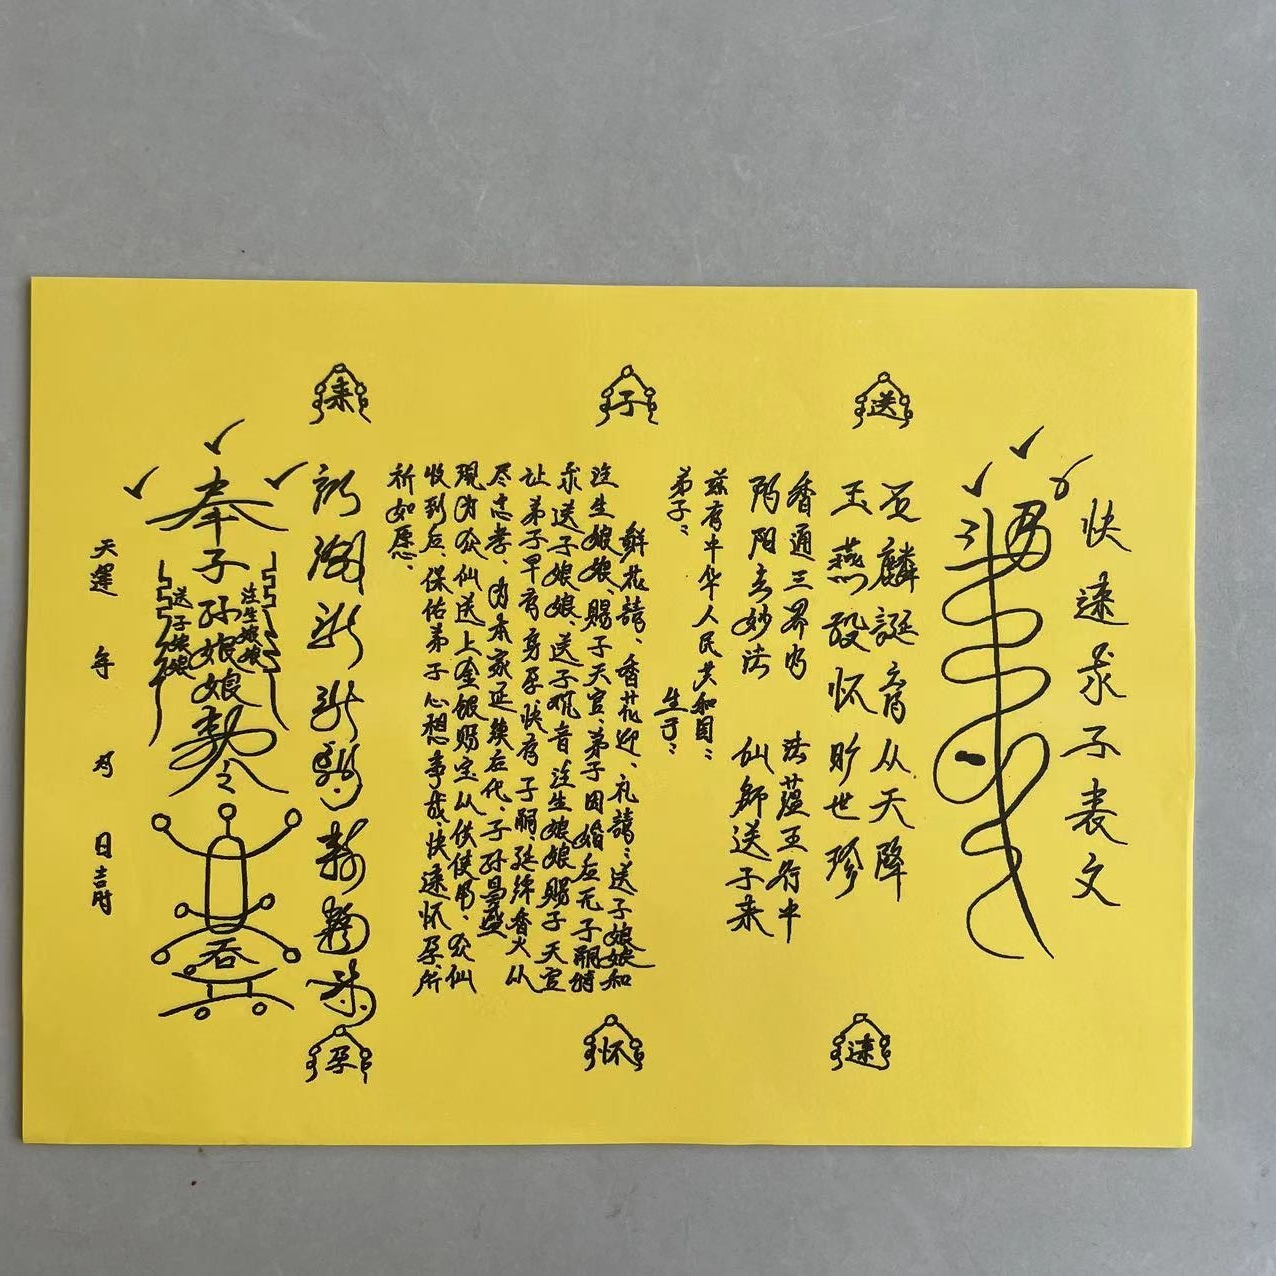 快速求子表文
石麟誕育从天降
玉燕投怀贮世珍
香通三界内 法蕴五行中
阴阳玄妙法 仙师送子来
兹有中华人民共和国:
弟子: 生于:
鲜花請、香花迎、礼請:送子娘娘和
注生娘娘、赐子天官、弟子因婚后无子嗣特
求送子娘娘、送子观音注生娘娘赐子天官
让弟子早有身孕快有子嗣、延绵香火从
尽忠孝、为本家延续后代、子孙昌盛
现为众仙送上金银财宝从供使用、众仙
收到后、保佑弟子心想事成、快速怀孕、所
祈如愿、
奉子孙娘娘勅令
注生娘娘
送子娘娘
吞
天運 年 月 日吉时
送
子
来
速
怀
孕